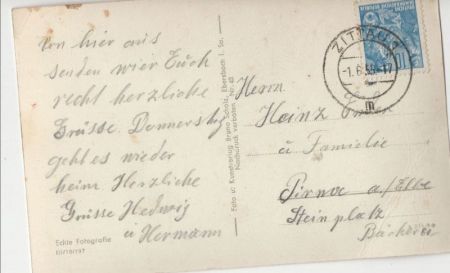 Von hier aus
senden wier Euch
recht herzliche
Grüsse. Donnerstg
geht es wieder
heim Herzliche
Grüsse Hedwig
u Hermann
Echte Fotografie
Foto u. Kunstverlag Bruno Scholz, Ebersbach i. Sa.
Nachdruck verboten Nr. 48
ZITTAU
-1.6.55-17
m
10
Herrn
Heinz
u Familie
Pirna a./Elbe
Steinplatz
Bäckerei